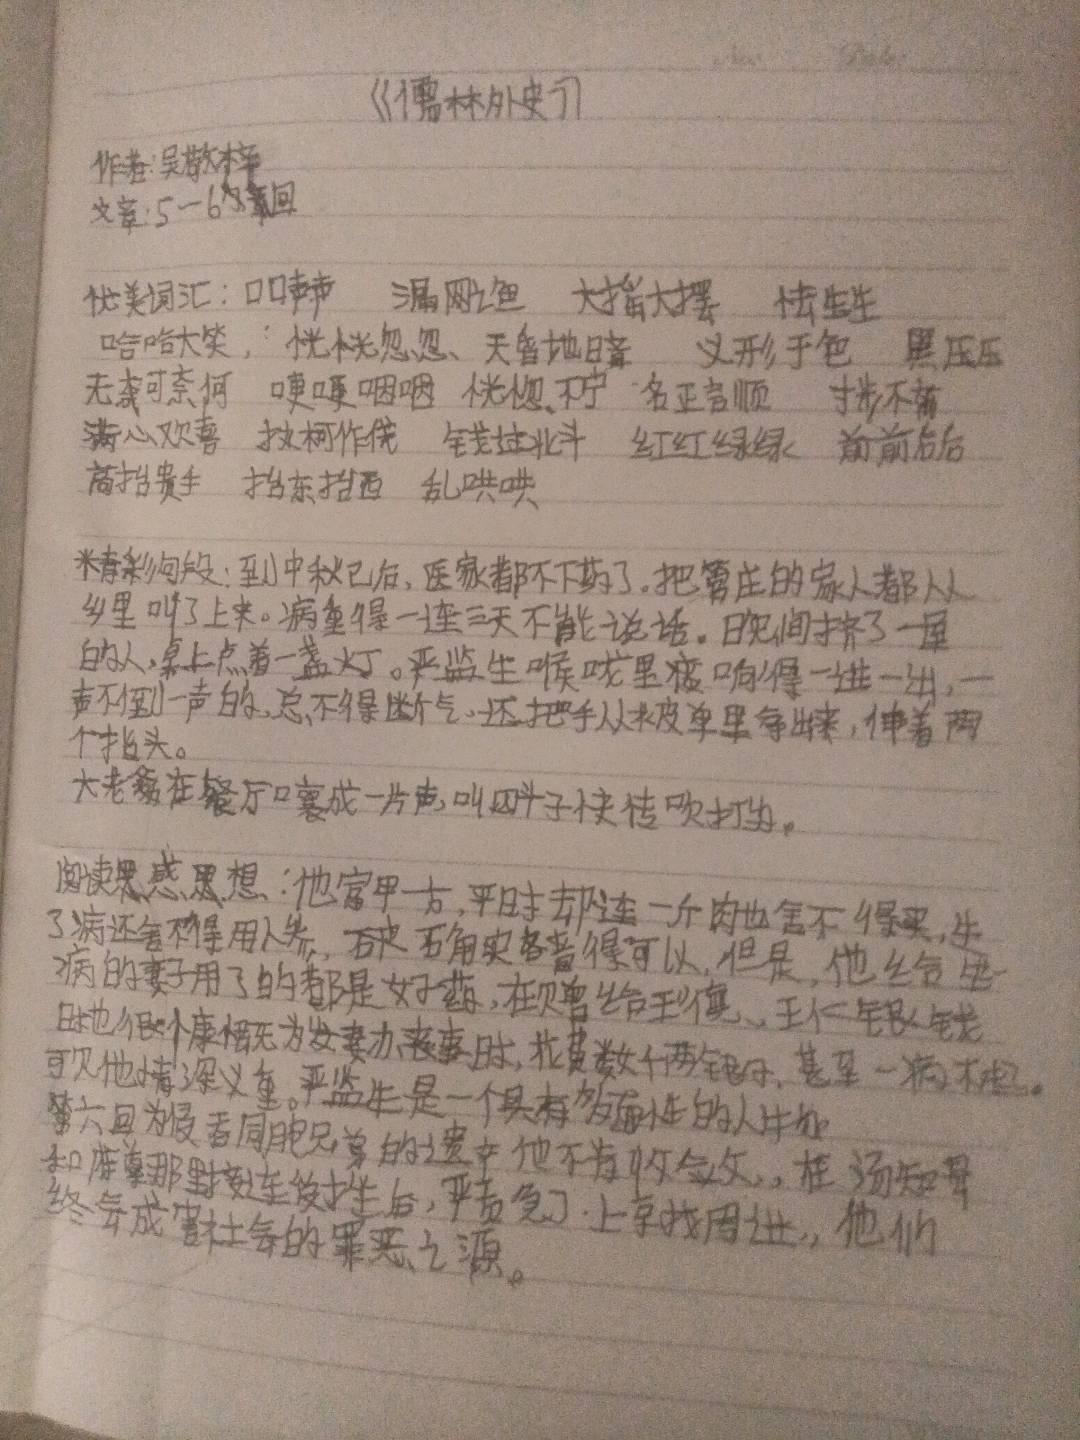 《儒林外史》
作者:吴敬梓
文章:5一6章回
优美词汇:口口声声 漏网之鱼 大摇大摆 怯生生
哈哈大笑, 恍恍忽忽、天昏地暗 义形于色 黑压压
无奈可奈何 哽哽咽咽 恍惚不宁 名正言顺
满心欢喜 钱过北斗 红红绿绿 前前后后
高抬贵手 指东指西 乱哄哄
精彩句段:到中秋已后,医家都不下药了.把管庄的家人都从
乡里叫了上来。病重得一连三天不能说话。晚间挤了一屋
的人,桌上点着一盏灯。严监生喉咙里痰响得一进一出,一
声不倒一声的,总不得断气,还把手从被皮单里拿出来,伸着两
个指头。
大老爹在餐厅口嚷成一片声,叫四斗子快传吹打的。
阅读思感思想:他富甲一方,平时却连一斤肉也舍不得买,生
了病还舍不得用人参, 吝啬得可以,但是,他给生
病的妻子用了的都是好药,在赠给王德、王仁银钱
时也很慷慨为发妻办丧事时,花费数千两银子,甚至一病不起。
可见他情深义重。严监生是一个具有多面性的人物
第六回为侵吞同胞兄弟的遗产他不有收敛,在汤知县
和府尊那里接连 后,严贡急了.上京找周进,他们
终会成害社会的罪恶之源。